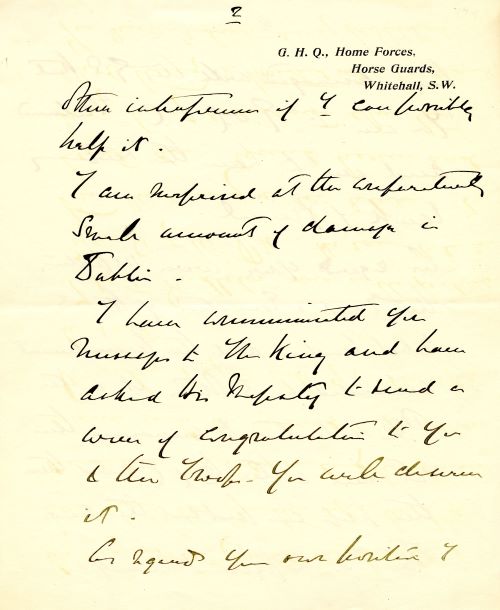 2
G. H. Q., Home Forces,
Horse Guards,
Whitehall, S.W.
other interference if I can possibly
help it.
I am surprised at the comparatively
small amount of damage in
Dublin.
I have communicated your
message to The King and have
asked His Majesty to send a
word of congratulation to you
& the troops. You well deserve
it.
As regards your own position I